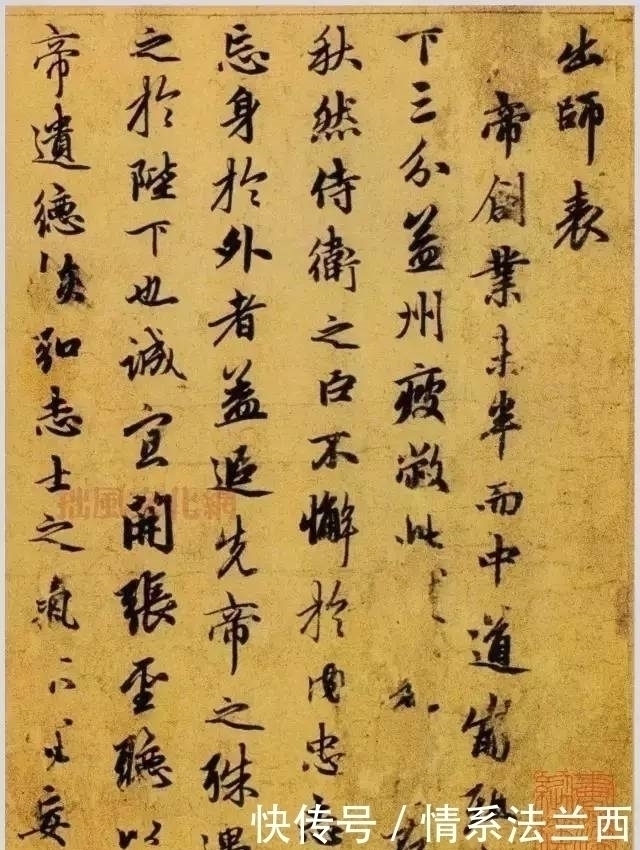 出師表
帝創業未半而中道崩
下三分益州疲敝此
秋然侍衛之臣不懈於内忠
忘身於外者蓋追先帝之殊遇
之於陛下也誠宜開張聖聽以
帝遺德恢弘志士之氣不宜妄
快传号/情系法兰西